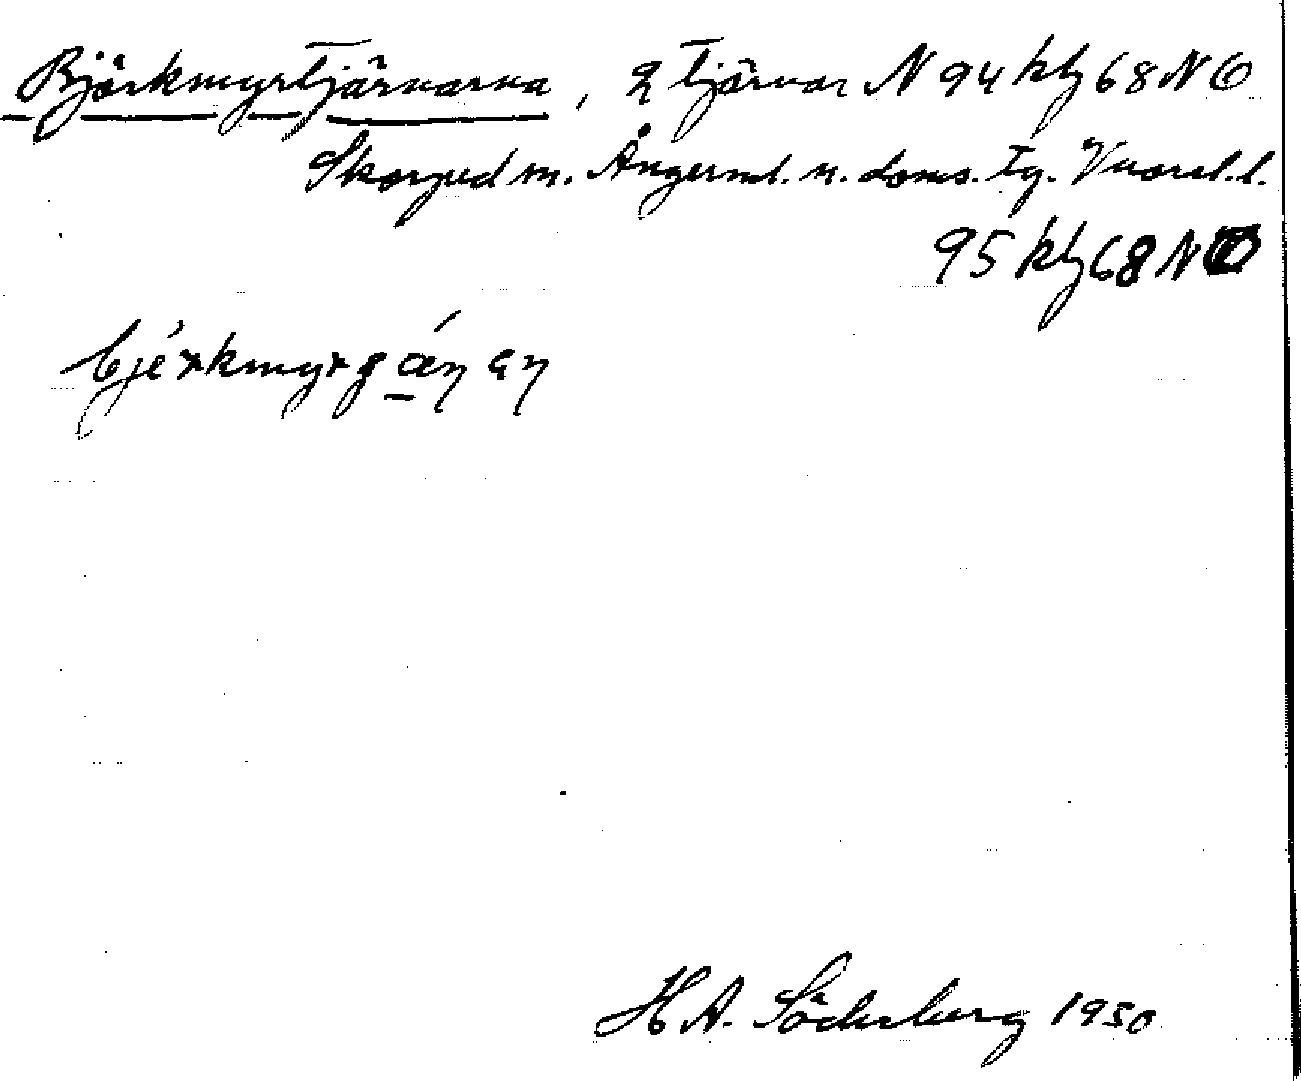 Björkmyrtjärnarna, 2 tjärnar N 94 kbj 68 NO
Skorped sn. Ångerml. n. doms. tg. Vnorrl. l.
95 kbj 68 NO
H A. Söderberg 1950